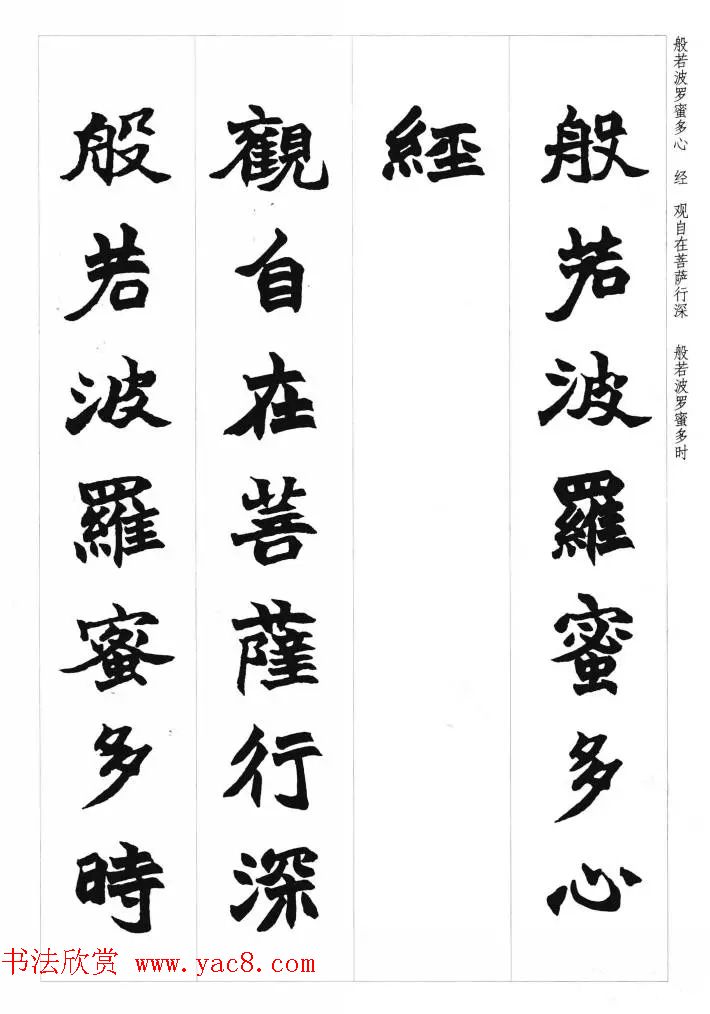 般若波罗蜜多心 经 观自在菩萨行深 般若波罗蜜多时
般若波羅蜜多心
經
觀自在菩薩行深
般若波羅蜜多時
书法欣赏 www.yac8.com